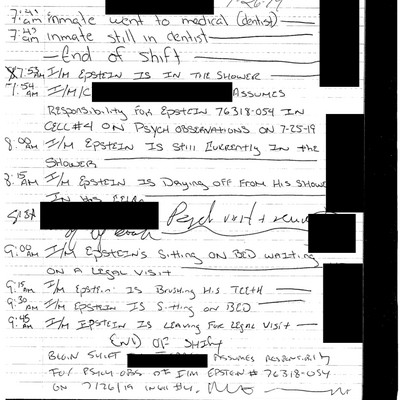 7-26-19
7:4 am inmate went to medical (dentist)
7:47 am inmate still in dentist
End of Shift
7:53 AM I/M EPSTEIN IS IN THE SHOWER
7:54 AM I/M/C ASSUMES
RESPONSIBILITY FOR EPSTEIN 76318-054 IN
CELL#4 ON PSYCH OBSERVATIONS ON 7-25-19
8:00 AM I/M EPSTEIN IS STILL CURRENTLY IN THE
SHOWER
8:15 AM I/M EPSTEIN IS DRYING OFF FROM HIS SHOWE
IN HIS
Psych visit +
9:00 AM I/M EPSTEIN'S SITTING ON BED WAITING
ON A LEGAL VISIT
9:15 AM I/M EPSTEIN IS BRUSHING HIS TEETH
9:30 AM I/M EPSTEIN IS SITTING ON BED
9:45 AM I/M EPSTEIN IS LEAVING FOR LEGAL VISIT
END OF SHIFT
BEGIN SHIFT ASSUMES RESPONSIBILITY
FOR PSYCH OBS OF I/M EPSTEIN # 76318-054
ON 7/26/19 IN #4.